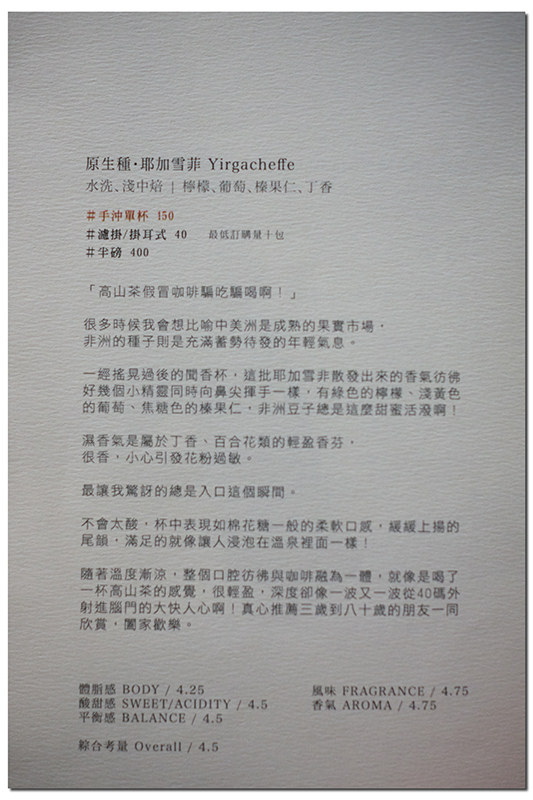 原生種·耶加雪菲 Yirgacheffe
水洗、淺中焙 | 檸檬、葡萄、榛果仁、丁香
#手沖單杯 150
#濾掛/掛耳式 40 最低訂購量十包
#半磅 400
「高山茶假冒咖啡騙吃騙喝啊！」
很多時候我會想比喻中美洲是成熟的果實市場，
非洲的種子則是充滿蓄勢待發的年輕氣息。
一經搖晃過後的聞香杯，這批耶加雪非散發出來的香氣彷彿
好幾個小精靈同時向鼻尖揮手一樣，有綠色的檸檬、淺黃色
的葡萄、焦糖色的榛果仁，非洲豆子總是這麼甜蜜活潑啊！
濕香氣是屬於丁香、百合花類的輕盈香芬，
很香，小心引發花粉過敏。
最讓我驚訝的總是入口這個瞬間。
不會太酸，杯中表現如棉花糖一般的柔軟口感，緩緩上揚的
尾韻，滿足的就像讓人浸泡在溫泉裡面一樣！
隨著溫度漸涼，整個口腔彷彿與咖啡融為一體，就像是喝了
一杯高山茶的感覺，很輕盈，深度卻像一波又一波從40碼外
射進腦門的大快人心啊！真心推薦三歲到八十歲的朋友一同
欣賞，闔家歡樂。
體脂感 BODY / 4.25 風味 FRAGRANCE / 4.75
酸甜感 SWEET/ACIDITY / 4.5 香氣 AROMA / 4.75
平衡感 BALANCE / 4.5
綜合考量 Overall / 4.5